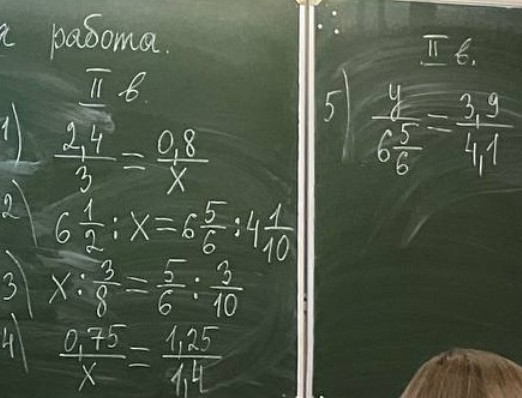 а работа.
II в.
1) 2,4/3 = 0,8/x
2) 6 1/2 : x = 6 5/6 : 4 1/10
3) x : 3/8 = 5/6 : 3/10
4) 0,75/x = 1,25/1,4
II в.
5) y/(6 5/6) = 3,9/4,1